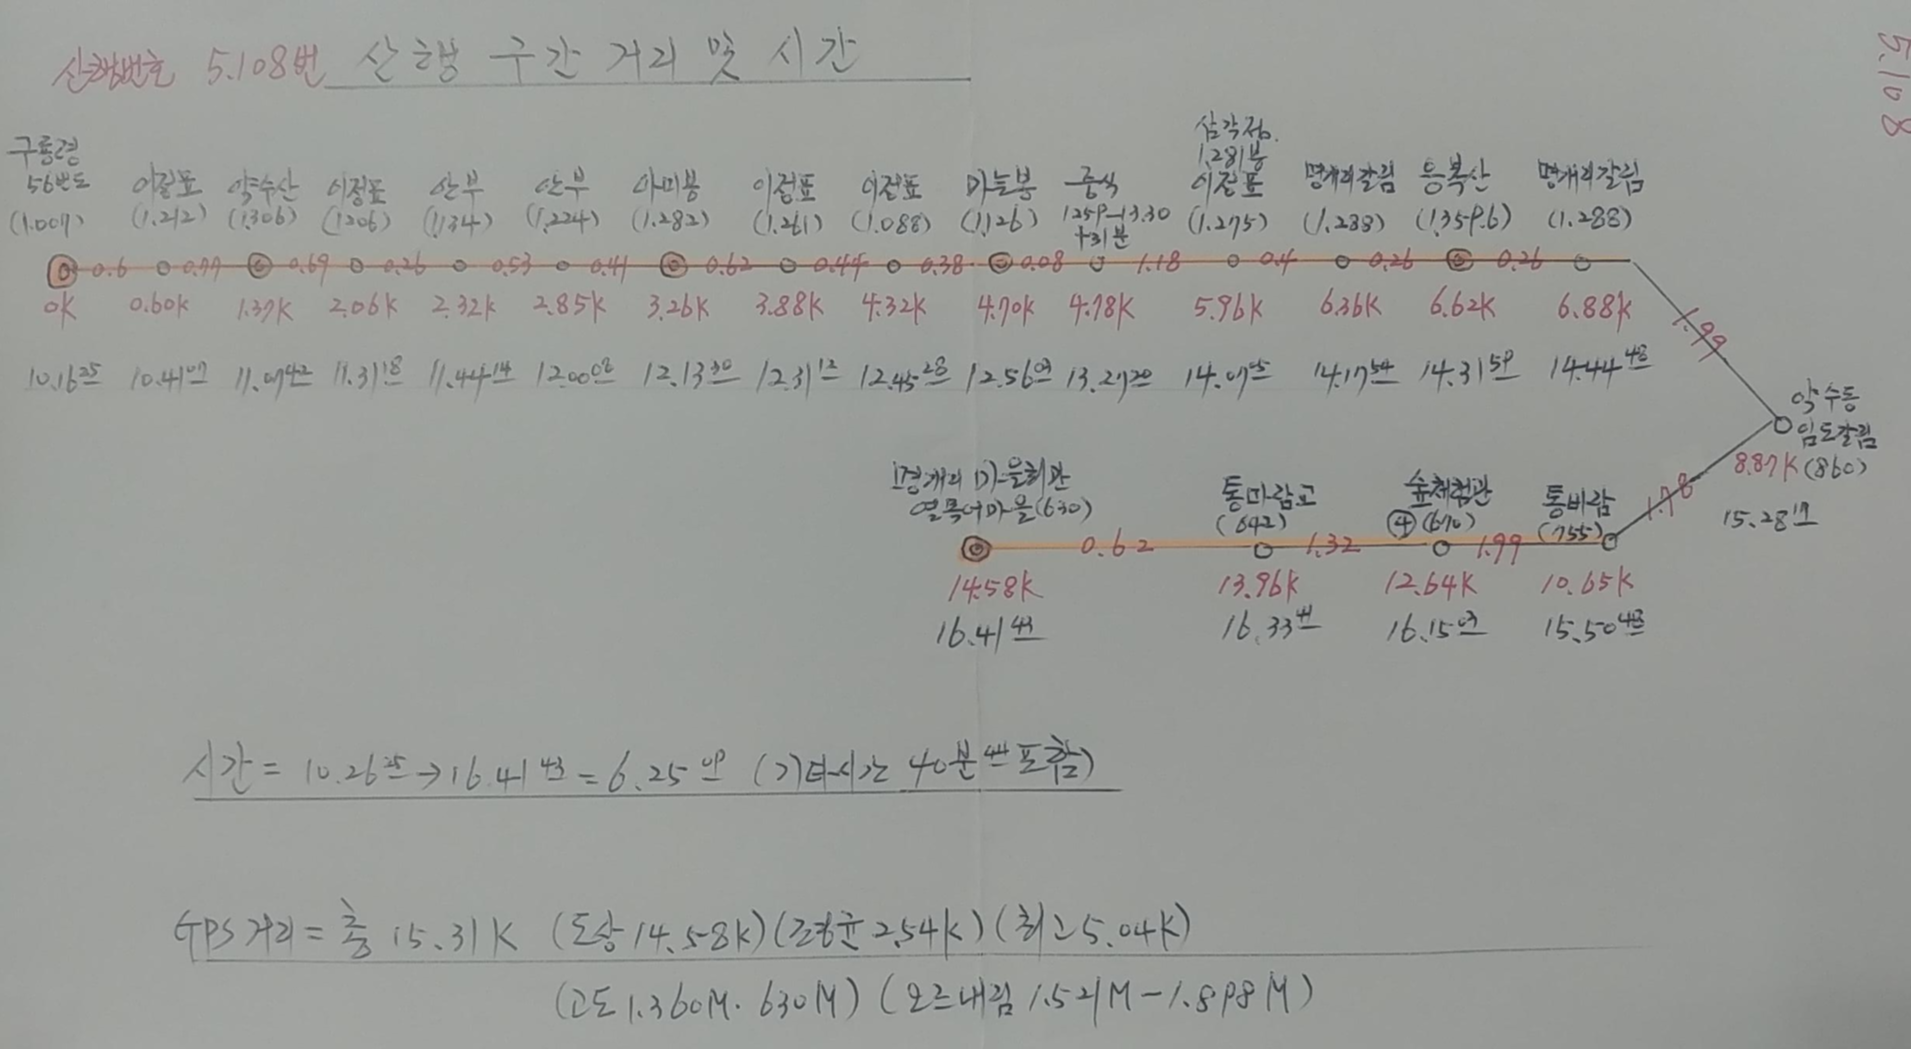 산행번호 5.108번 산행 구간 거리 및 시간
5.108
구룡령 56번도 (1.007)
이정표 (1.212)
약수산 (1.306)
이정표 (1206)
안부 (1,134)
안부 (1,224)
아미봉 (1.282)
이정표 (1.261)
이정표 (1.088)
마늘봉 (1,126)
중식 1259-13.30 +31분
삼각점. 1.281봉 이정표 (1.275)
명개리갈림 (1.288)
응복산 (1359.6)
명개리갈림 (1.288)
0.6 0.77 0.69 0.26 0.53 0.41 0.62 0.44 0.38 0.08 1.18 0.4 0.26 0.26
0K 0.60K 1.37K 2.06K 2.32K 2.85K 3.26K 3.88K 4.32K 4.70K 4.78K 5.96K 6.36K 6.62K 6.88K
1.99
10.16 25 10.41 07 11.07 42 11.31 18 11.44 14 12.00 08 12.13 30 12.31 12 12.45 28 12.56 03 13.27 20 14.07 05 14.17 54 14.31 59 14.44 48
약수동 임도갈림
8.87K (860)
15.28 17
1.78
명개리 마을회관 열목어마을(630)
통마람교 (642)
숲체험관 ④(670)
통바람 (755)
0.62 1.32 1.99
14.58K 13.96K 12.64K 10.65K
16.41 43 16.33 41 16.15 03 15.50 48
시간 = 10.26 25 → 16.41 43 = 6.25 09 (기타시간 40분 44 포함)
GPS거리 = 총 15.31K (도상 14.58K) (평균 2.54K) (최고 5.04K)
(고도 1.360M. 630M) (오르내림 1.521M - 1.898M)